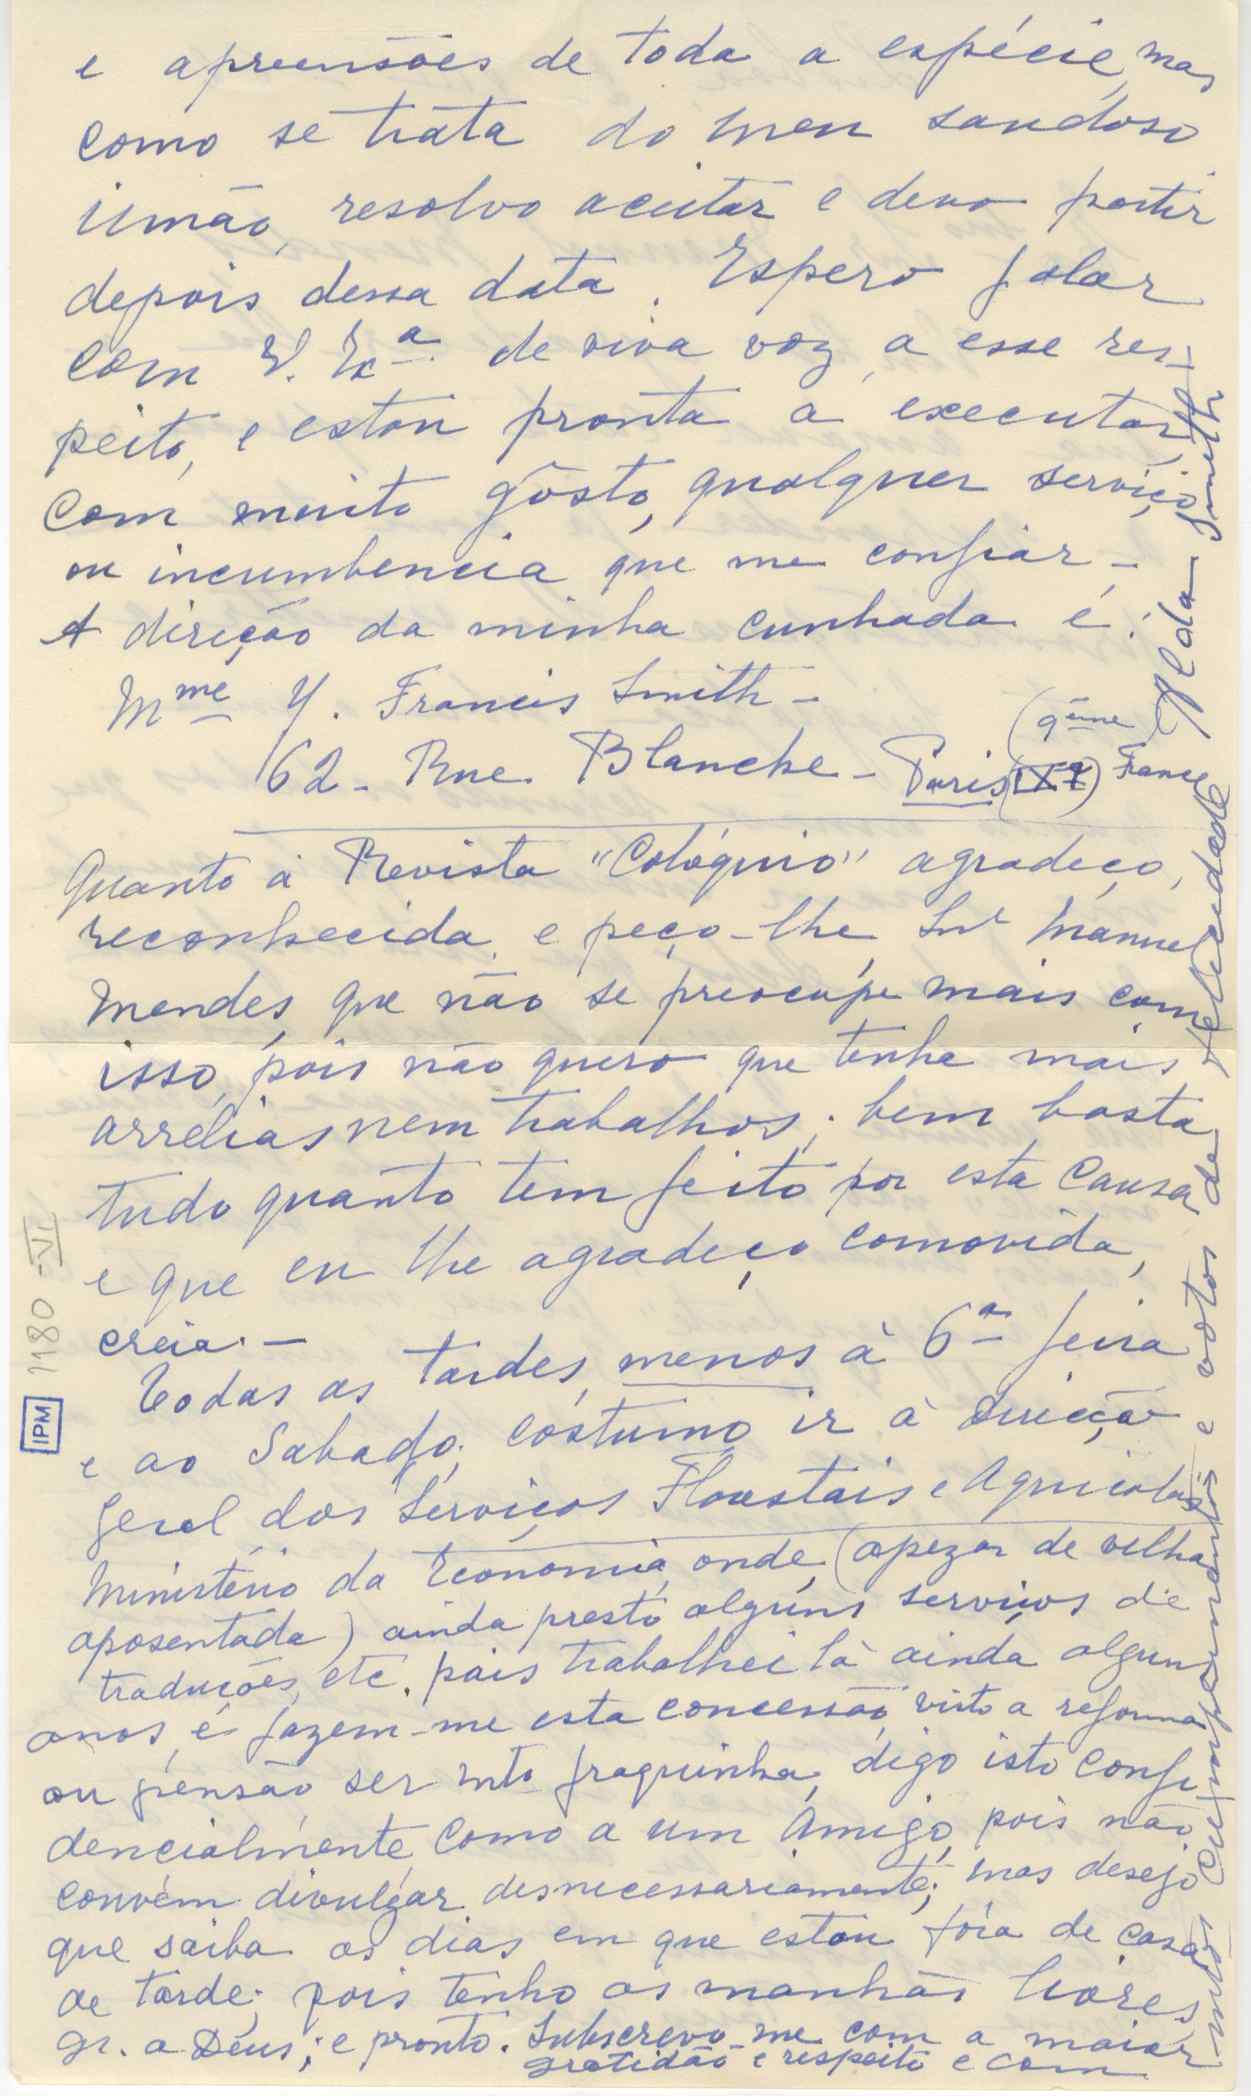 e apreensões de toda a espécie, mas
como se trata do meu saudoso
irmão, resolvo aceitar e devo partir
depois dessa data. Espero falar
com V. Exª de viva voz, a esse res-
peito, e estou pronta a executar,
com muito gôsto, qualquer serviço
ou incumbencia que me confiar -
A direção da minha cunhada é:
Mme Y. Francis Smith -
(9ème)
62 - Rue Blanche - Paris (IXe) France
Quanto à Revista "Colóquio" agradeço,
reconhecida, e peço-lhe, Snr Manuel
Mendes, que não se preocupe mais com
isso, pois não quero que tenha mais
arrelias nem trabalhos; bem basta
tudo quanto tem feito por esta Causa
e que eu lhe agradeço comovida,
creia. -
Todas as tardes, menos à 6ª feira
e ao Sabado, costumo ir à Direcção
Geral dos Serviços Florestais e Agricolas
Ministério da Economia, onde, (apezar de velha
aposentada) ainda presto alguns serviços de
traduções, etc. pois trabalhei lá ainda alguns
anos, e fazem-me esta concessão, visto a reforma
ou pensão ser mto fraquinha, digo isto confi
dencialmente, como a um Amigo, pois não
convém divulgar desnecessariamente; mas desejo
que saiba os dias em que estou fóra de casa,
de tarde; pois tenho as manhãs livres,
gr. a Deus; e pronto. Subscrevo-me com a maior
gratidão e respeito e com
mtos cumprimentos e votos de felicidade
Ilda Smith
1180-VI
IPM